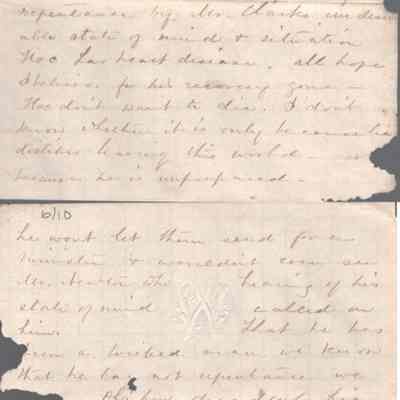 repentance by Mr. Clarks
able state of mind & situation
Hoc has heart disease. all hope
I believe for his recovery gone -
Hoc don't want to die. I don't
know whether it is only he
dislikes leaving this world -
because he is unprepared -
6/10
he wont let them send for a
minister & wouldnt even see
Mr. Newton who hearing of his
state of mind called on
him. That he has
been a wicked man we know
that he has not repentance we